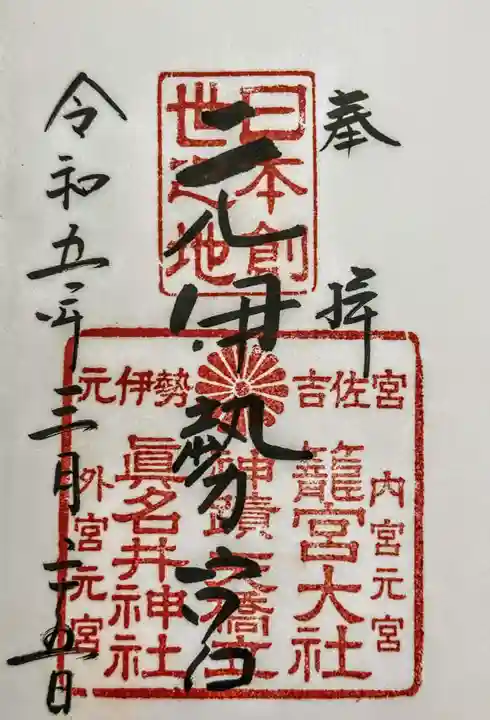 奉拝
日本創
世之地
元伊勢宮
吉佐宮
元伊勢
内宮元宮
籠宮大社
神蹟天橋立
眞名井神社
外宮元宮
令和五年三月二十五日